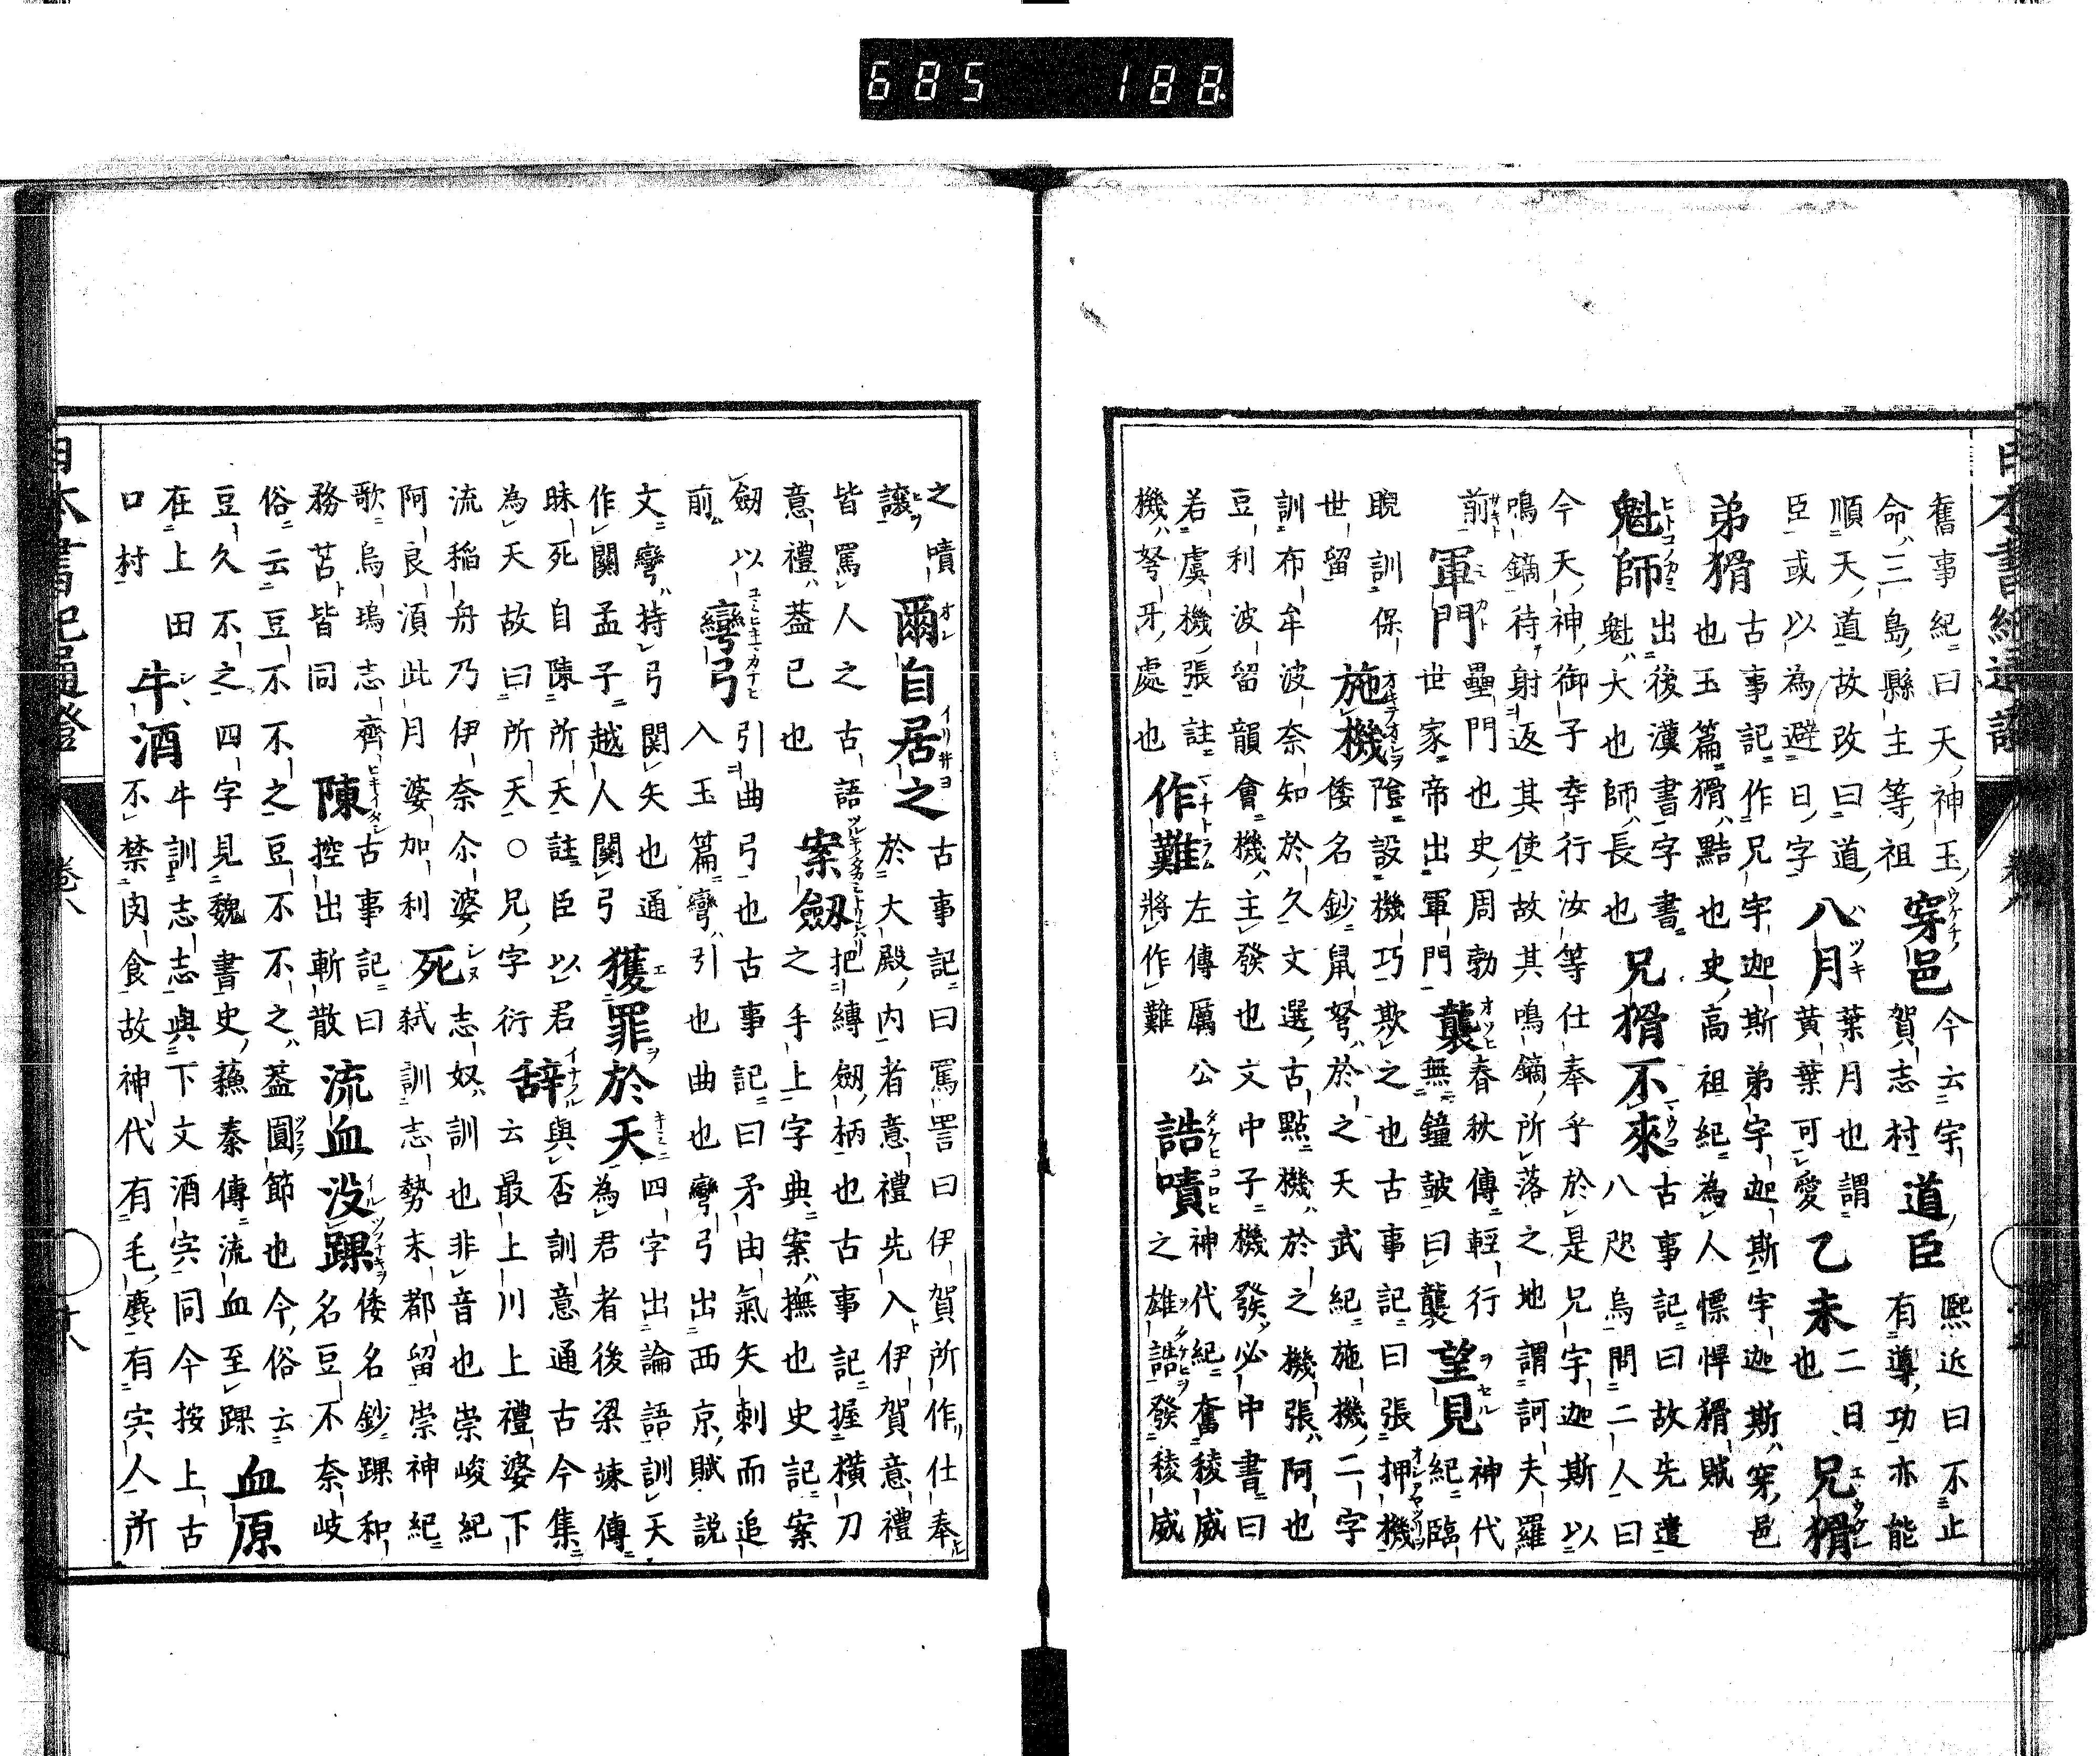 舊事紀曰天神玉命三島縣主等祖穿邑今云宇賀志村道臣熙近曰不止有導功亦能
順天道故改曰道臣或以為避日字八月葉月也謂黃葉可愛乙未二日也兄猾
弟猾古事記作兄宇迦斯弟宇迦斯宇迦斯穿邑也玉篇猾黠也史高祖紀為人慓悍猾賊
魁師出後漢書字書魁大也師長也兄猾不來古事記曰故先遣八咫烏問二人曰
今天神御子幸行汝等仕奉乎於是兄宇迦斯以鳴鏑待射返其使故其鳴鏑所落之地謂訶夫羅
前軍門壘門也史周勃世家帝出軍門襲春秋傳輕行無鐘皷曰襲望見神代紀臨
睨訓保世留施機陰設機巧欺之也古事記曰張押機倭名鈔鼠弩於之天武紀施機二字
訓布牟波奈知於久文選古點機於之機張阿也豆利波留韻會機主發也文中子機發必中書曰
若虞機張註機弩牙處也作難左傳厲公將作難誥嘖神代紀奮稜威之雄誥發稜威
之嘖讓爾自居之古事記曰罵詈曰伊賀所作仕奉於大殿內者意禮先入伊賀意禮
皆罵人之古語意禮蓋已也案劔把縛劔柄也古事記握橫刀之手上字典案撫也史記案
劔以前彎弓引曲弓也古事記曰矛由氣矢刺而追入玉篇彎引也曲也彎弓出西京賦説
文彎持弓関矢也通作關孟子越人關弓獲罪於天四字出論語訓天為君者後梁竦傳
昧死自陳所天註臣以君為天故曰所天○兄字衍辞與否訓意通古今集云最上川上禮婆下
流稲舟乃伊奈尒婆阿良湏此月婆加利死志奴訓也非音也崇峻紀弑訓志勢末都留崇神紀
歌烏塢志齊務苫皆同陳古事記曰控出斬散流血没踝倭名鈔踝和名豆不奈岐
俗云豆不不之豆不不之蓋圓節也今俗云豆久不之四字見魏書史蘓秦傳流血至踝血原
在上田口村牛酒牛訓志志與下文酒宍同今按上古不禁肉食故神代有毛麁有宍人所
日本書紀通證
卷八